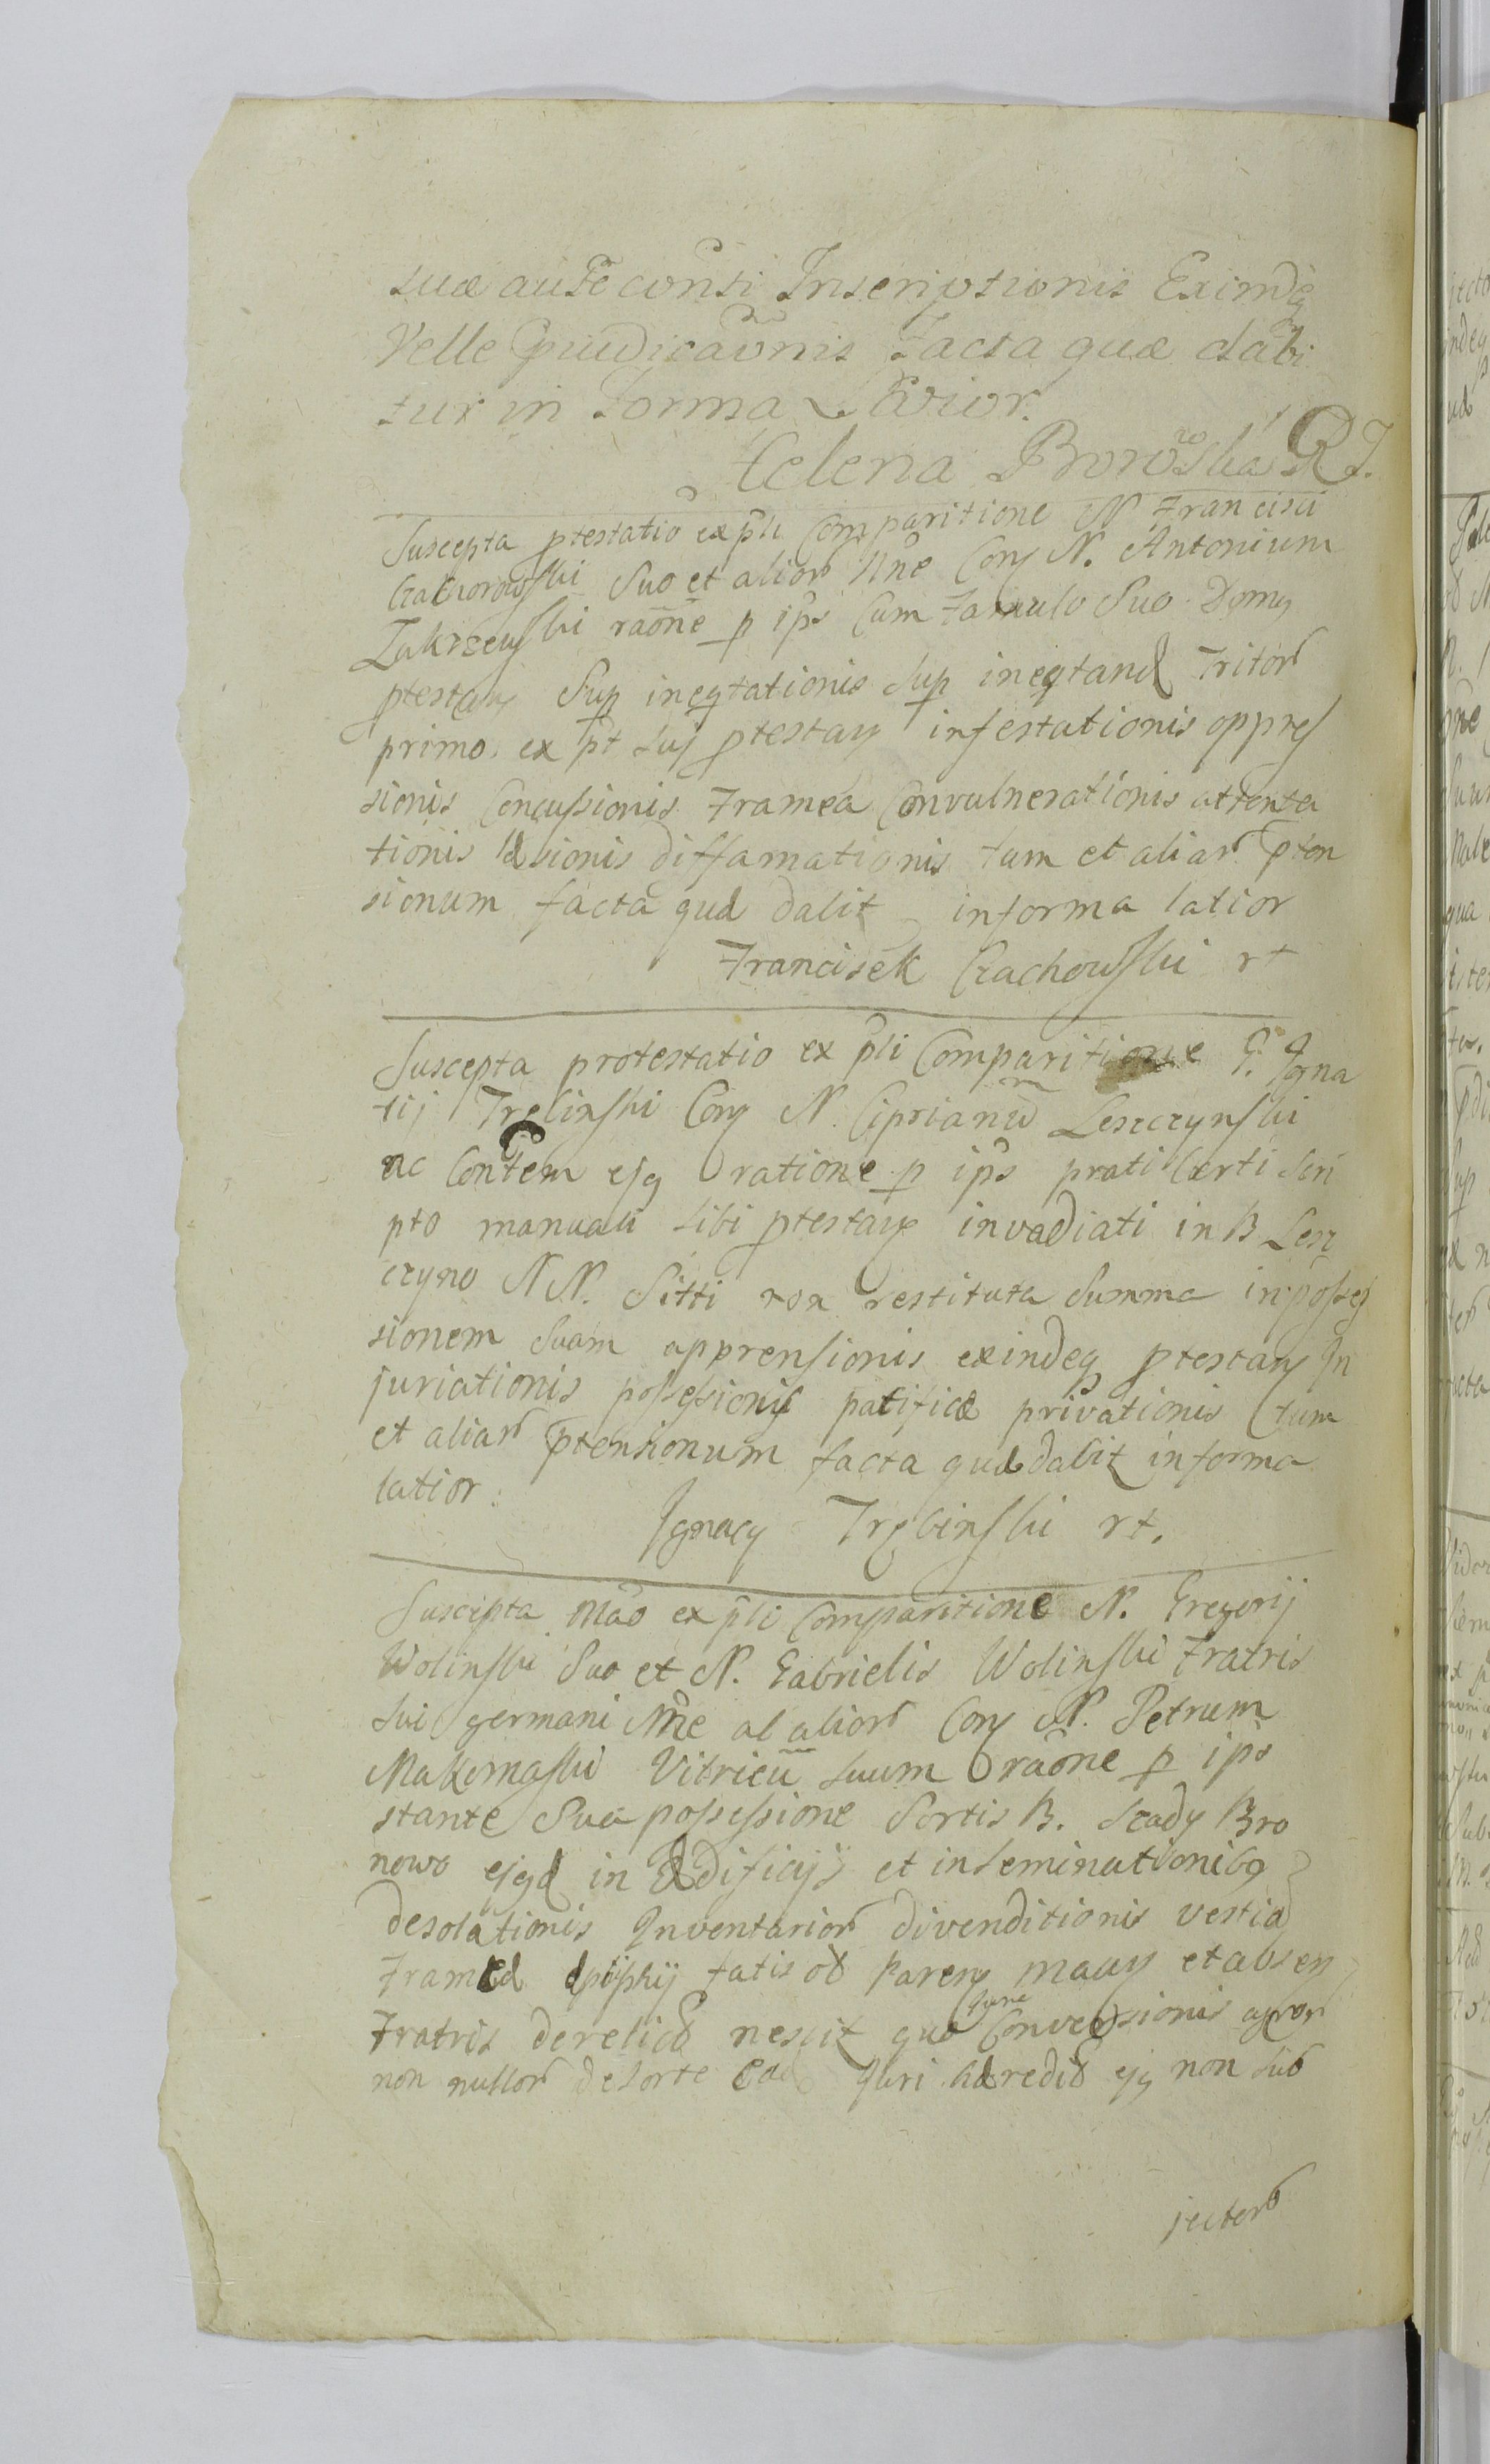 suæ aut̃e con̄sti Inscriptionis Exindeq
Velle p̱iudicaōnis Facta quæ dabi
tur in forma Latior.
Helena Borowska RJ.
Suscepta ptestatio ex p̄li Comparitione N Francisci
Suo et alior N̄ne Con N. Antonium
Zakrzewski raōne p ip̄s Cum Famulo Suo Domy
ptestan Sup ineqtationis Sup ineqtand Tritor
primo ex pt suj ptestan infestationis oppres
sionis Concussionis Framea Convulnerationis attenta
tionis læsionis diffamationis tum et aliar pten
sionum facta quæ dabit informa latior
Francisek Czachowski rt
Suscepta protestatio ex p̄li Comparitione G. Igna
tij Trębinski Con N. Ciprianū Leszczynski
ac Con̄tem ejq ratione p ip̄s prati Certi Scri
pto manuali sibi ptestan invadiati in B Lesz
czyno NN. Sitti non restituta Summa in posses
sionem Suam apprensionis exindeq ptestan In
juriationis possessionis patificæ privationis tum
et aliar ptensionum facta quæ dabit informa
latior:
Ignacy Trębinski rt.
Suscepta Māo ex p̄li Comparitione N. Gregorij
Wolinski Suo et N. Gabrielis Wolinski Fratris
sui germani N̄ne ac alior Con N. Petrum
Makomaski Vitricū suum raōne p ip̄s
stante Sua possessione Sortis B. Szady Bro
nowo ejqd in Ædificijs et inseminationibq
desolationis Inventarior divenditionis vestia
Frameæ fatis od Paren et absen
Fratris derelict nescit quo Jure Conversionis agror
non nullor de sorte Ead Juri hæredit ejq non sub
jector